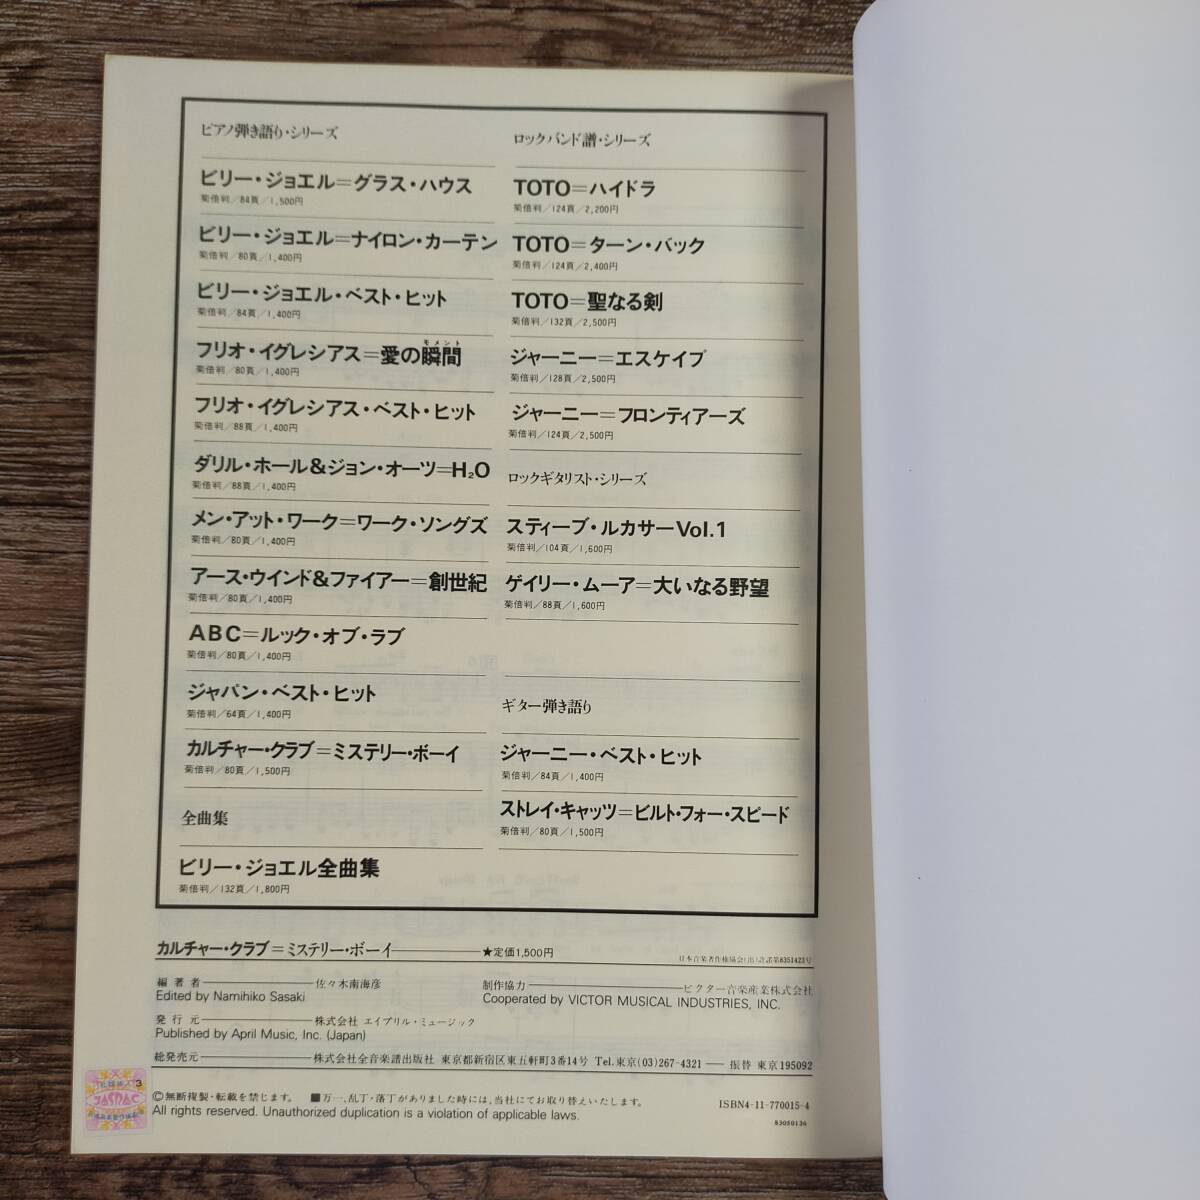 ピアノ弾き語り・シリーズ
ビリー・ジョエル＝グラス・ハウス
菊倍判／84頁／1,500円
ビリー・ジョエル＝ナイロン・カーテン
菊倍判／80頁／1,400円
ビリー・ジョエル・ベスト・ヒット
菊倍判／84頁／1,400円
モメント
フリオ・イグレシアス＝愛の瞬間
菊倍判／80頁／1,400円
フリオ・イグレシアス・ベスト・ヒット
菊倍判／88頁／1,400円
ダリル・ホール&ジョン・オーツ＝H₂O
菊倍判／88頁／1,400円
メン・アット・ワーク＝ワーク・ソングズ
菊倍判／80頁／1,400円
アース・ウインド&ファイアー＝創世紀
菊倍判／80頁／1,400円
ABC＝ルック・オブ・ラブ
菊倍判／80頁／1,400円
ジャパン・ベスト・ヒット
菊倍判／64頁／1,400円
カルチャー・クラブ＝ミステリー・ボーイ
菊倍判／80頁／1,500円
全曲集
ビリー・ジョエル全曲集
菊倍判／132頁／1,800円
ロックバンド譜・シリーズ
TOTO＝ハイドラ
菊倍判／124頁／2,200円
TOTO＝ターン・バック
菊倍判／124頁／2,400円
TOTO＝聖なる剣
菊倍判／132頁／2,500円
ジャーニー＝エスケイプ
菊倍判／128頁／2,500円
ジャーニー＝フロンティアーズ
菊倍判／124頁／2,500円
ロックギタリスト・シリーズ
スティーブ・ルカサーVol.1
菊倍判／104頁／1,600円
ゲイリー・ムーア＝大いなる野望
菊倍判／88頁／1,600円
ギター弾き語り
ジャーニー・ベスト・ヒット
菊倍判／84頁／1,400円
ストレイ・キャッツ＝ビルト・フォー・スピード
菊倍判／80頁／1,500円
カルチャー・クラブ＝ミステリー・ボーイ ★定価1,500円
日本音楽著作権協会(出)許諾第8351423号
編著者 佐々木南海彦
Edited by Namihiko Sasaki
制作協力 ビクター音楽産業株式会社
Cooperated by VICTOR MUSICAL INDUSTRIES, INC.
発行元 株式会社 エイプリル・ミュージック
Published by April Music, Inc. (Japan)
総発売元 株式会社全音楽譜出版社 東京都新宿区東五軒町3番14号 Tel.東京(03)267-4321 振替 東京195092
©無断複製・転載を禁じます。 ■万一、乱丁・落丁がありました時には、当社にてお取り替えいたします。
All rights reserved. Unauthorized duplication is a violation of applicable laws.
ISBN4-11-770015-4
83050136
3
JASRAC